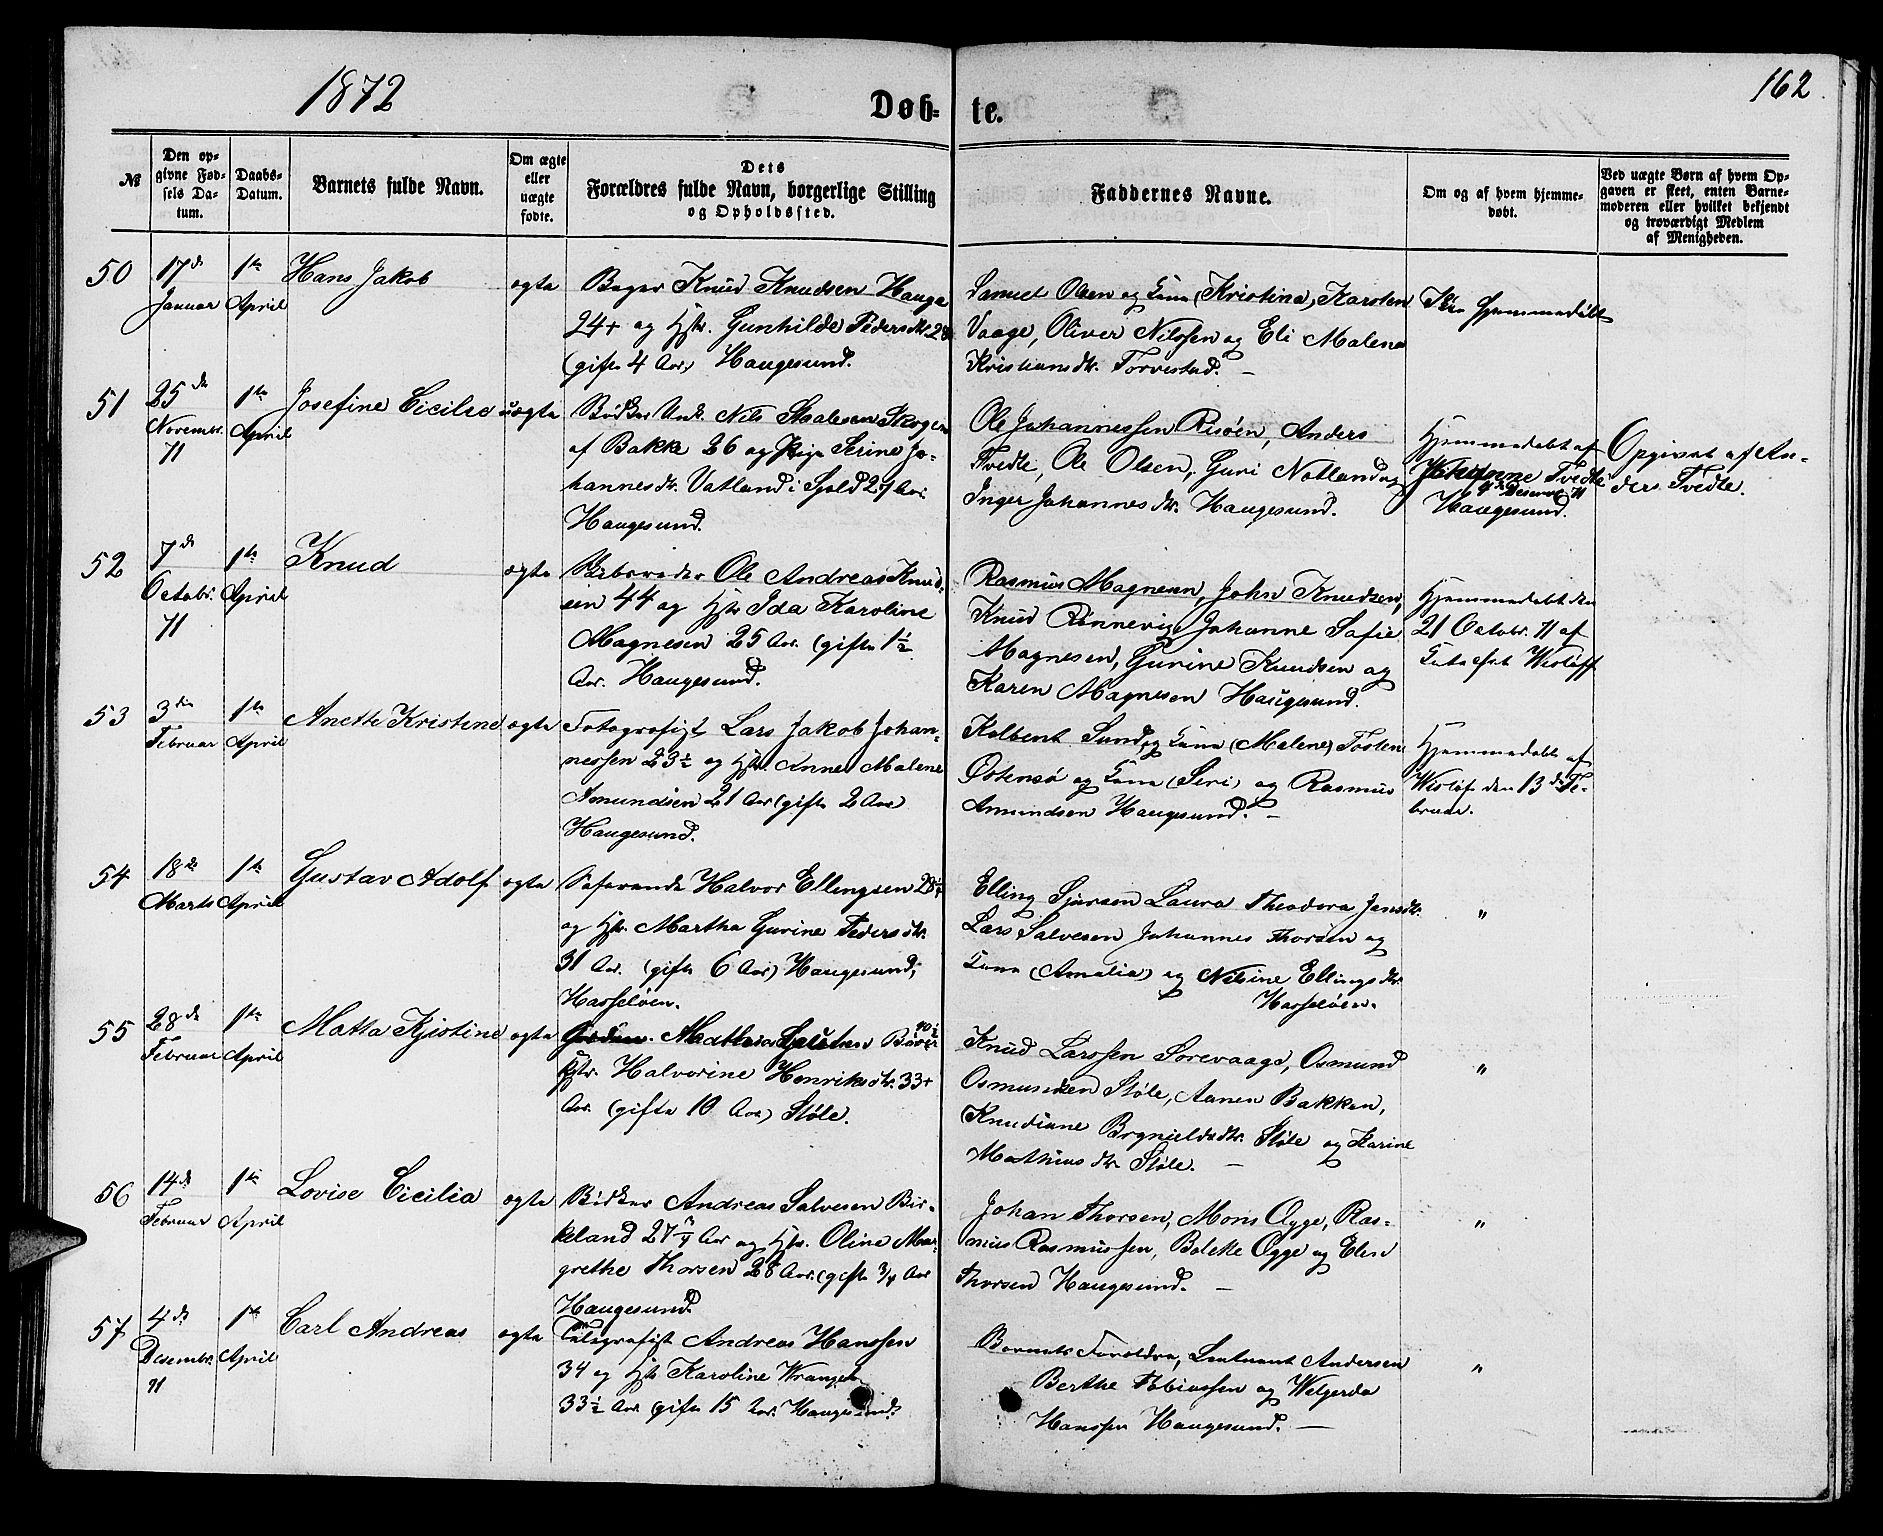 1872
162
Døb-
te.
№
Den op-
givne Fød-
sels Da-
tum.
Daabs-
Datum.
Barnets fulde Navn.
Om ægte
eller
uægte
fødte.
Dets
Forældres fulde Navn, borgerlige Stilling
og Opholdssted.
Faddernes Navne.
Om og af hvem hjemme-
døbt.
Ved uægte Børn af hvem Op-
gaven er skeet, enten Barne-
moderen eller hvilket bekjendt
og troværdigt Medlem
af Menigheden.
50
17de
Januar
1ste
April
Hans Jakob
ægte
Bager Knud Knudsen Hauge
24+ og Hstr. Gunhilde Pedersdtr. 28
(gifte 4 Aar) Haugesund.
Samuel Olsen og Kone (Kristina) Karsten
Vaage, Oliver Nilssen og Eli Malene
Kristiansdtr. Torvestad. —
Ikke Hjemmedøbt
51
25de
Novembr.
71
1ste
April
Josefine Cicilie
uægte
Bødker Unk. Nils Staalesen Skogen
af Bakke 26 og Pige Serine Jo-
hannesdtr. Vatland i Sjold 27 Aar.
Haugesund.
Ole Johannessen Risøen, Anders
Tvedte, Ole Olsen, Guri Notland og
Inger Johannesdtr. Haugesund.
Hjemmedøbt af
Johanne Tvedte
Desembr 71
Haugesund.
Opgivet af An-
ders Tvedte.
52
7de
Octobr.
71
1ste
April
Knud
ægte
Ole Andreas Knud-
sen 44 og Hstr Ida Karoline
Magnesen 25 Aar. (gifte 1½
Aar. Haugesund.
Rasmus Magnesen, John Knudsen,
Knud Rønnevig, Johanne Safie
Magnesen, Gurine Knudsen og
Karen Magnesen Haugesund.
Hjemmedøbt den
21 Octobr. 71 af
Wisløff
53
3die
Februar
1ste
April
Anette Kristine
ægte
Fotografist Lars Jakob Johan-
nessen 23½ og Hstr. Anne Malene
Amundsen 21 Aar (gifte 2 Aar)
Haugesund.
Kolbent Sund og Kone (Malene) Tosten
Østensø og Kone (Siri) og Rasmus
Amundsen Haugesund. —
Hjemmedøbt af
Wisløf den 13de Fe-
bruar.
54
18de
Marts
1ste
April
Gustav Adolf
ægte
Søfarende Halvor Ellingsen 28¼
og Hstr. Martha Gurine Pedersdtr.
31 Aar. (gifte 6 Aar) Haugesund,
Hasseløen.
Elling Sjursen Laura Theodora Jansdtr.
Lars Salvesen Johannes Thorsen og
Kone (Amalia) og Nilsine Ellingsdtr.
Hasseløen.
"
55
28de
Februar
1ste
April
Matta Kjistine
ægte
Hstr. Halvorine Henriksdtr. 33+
Aar. (gifte 10 Aar) Støle.
Knud Larssen Sorevaage, Osmund
Osmundsen Støle, Aanen Bakken,
Knudiane Brynieldsdtr. Støle og Karine
Mathiasdtr. Støle. —
"
56
14de
Februar
1ste
April
Lovise Cicilia
ægte
Bødker Andreas Salvesen Bir-
keland 27 Aar og Hstr. Oline Mar-
grethe Thorsen 28 Aar. (gifte ¾ Aar
Haugesund.
Johan Thorsen, Mons Ogge, Ras-
mus Rasmussen, Boleke Ogge og Elen
Thorsen Haugesund. —
"
57
4de
Desembr.
71
1ste
April
Carl Andreas
ægte
Telegrafist Andreas Hanssen
34 og Hstr Karoline Wrangel
33½ Aar (gifte 15 Aar. Haugesund.
Barnets Forældre, Leutnant Andersen
Berthe Tobiassen og Welgerda
Hanssen Haugesund. —
"